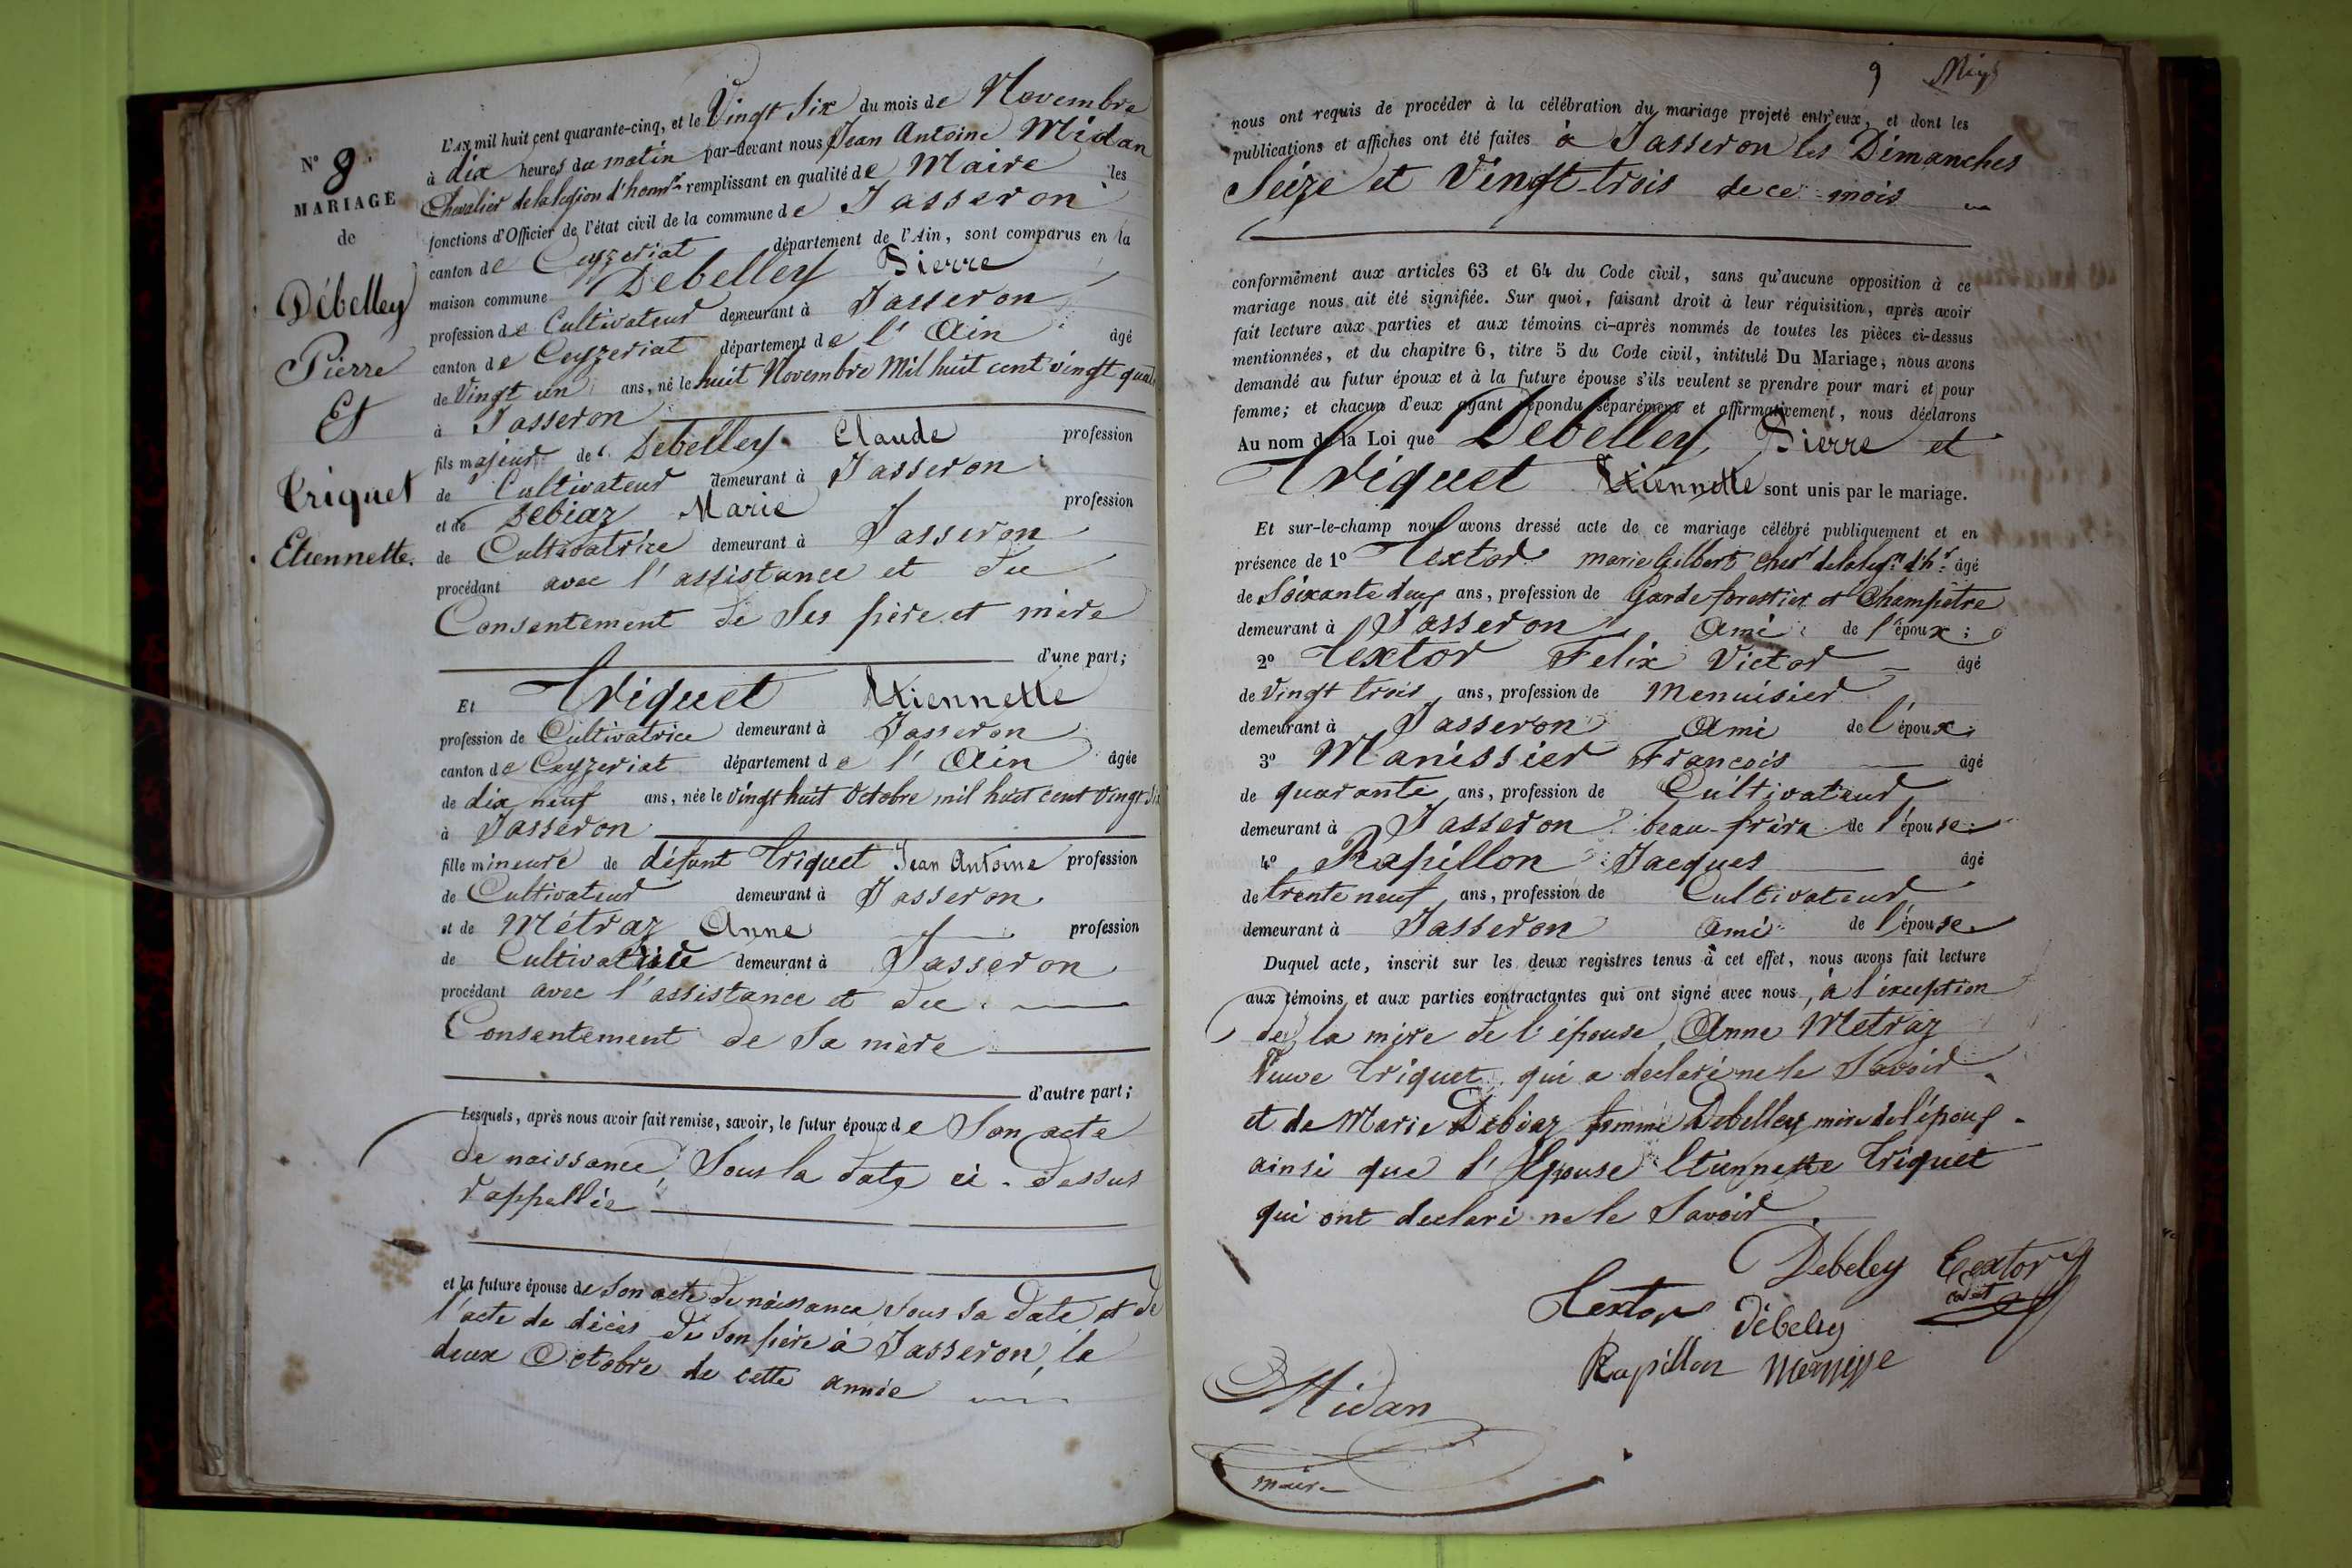 N° 8.
MARIAGE
de
Débelley
Pierre
Et
Triquet
Etiennette.
L'AN mil huit cent quarante-cinq, et le Vingt Six du mois de Novembre
à dix heures du matin par-devant nous Jean Antoine Midan
Chevalier de la legion d'honnr remplissant en qualité de Maire les
fonctions d'Officier de l'état civil de la commune de Jasseron
canton de Ceyzeriat département de l'Ain, sont comparus en la
maison commune Debelley Pierre
profession de Cultivateur demeurant à Jasseron
canton de Ceyzeriat département de l' Ain âgé
de Vingt un ans, né le huit Novembre Mil huit cent vingt quat
à Jasseron
fils majeur de Debelley Claude profession
de Cultivateur demeurant à Jasseron
et de Debiaz Marie profession
de Cultivatrice demeurant à Jasseron
procédant avec l'assistance et du
Consentement de Ses père et mère
d'une part;
Et Triquet Etiennette
profession de Cultivatrice demeurant à Jasseron
canton de Ceyzeriat département de l' Ain âgée
de dix neuf ans, née le vingt huit Octobre mil huit cent vingt six
à Jasseron
fille mineure de défunt Triquet Jean Antoine profession
de Cultivateur demeurant à Jasseron
et de Métraz Anne profession
de Cultivatrice demeurant à Jasseron
procédant avec l'assistance et du
Consentement de Sa mère
d'autre part;
Lesquels, après nous avoir fait remise, savoir, le futur époux de Son acte
de naissance, Sous la date ci-dessus
rappellée
et la future épouse de Son acte de naissance sous sa date et de
l'acte de décès de Son père à Jasseron, le
deux Octobre de cette année
9
nous ont requis de procéder à la célébration du mariage projeté entr'eux, et dont les
publications et affiches ont été faites à Jasseron les Dimanches
Seize et Vingt-trois de ce mois
conformément aux articles 63 et 64 du Code civil, sans qu'aucune opposition à ce
mariage nous ait été signifiée. Sur quoi, faisant droit à leur réquisition, après avoir
fait lecture aux parties et aux témoins ci-après nommés de toutes les pièces ci-dessus
mentionnées, et du chapitre 6, titre 5 du Code civil, intitulé Du Mariage, nous avons
demandé au futur époux et à la future épouse s'ils veulent se prendre pour mari et pour
femme; et chacun d'eux ayant répondu séparément et affirmativement, nous déclarons
Au nom de la Loi que Debelley Pierre et
Triquet Etiennette sont unis par le mariage.
Et sur-le-champ nous avons dressé acte de ce mariage célébré publiquement et en
présence de 1° Textor marie Gilbert Cher de la legn d'hr âgé
de Soixante deux ans, profession de Garde forestier et Champêtre
demeurant à Jasseron Ami de l'époux;
2° Textor Felix Victor âgé
de Vingt trois ans, profession de Menuisier
demeurant à Jasseron Ami de l'époux;
3° Manissier François âgé
de quarante ans, profession de Cultivateur
demeurant à Jasseron beau-frère de l'épouse;
4° Rapillon Jacques âgé
de trente neuf ans, profession de Cultivateur
demeurant à Jasseron Ami de l'épouse
Duquel acte, inscrit sur les deux registres tenus à cet effet, nous avons fait lecture
aux témoins et aux parties contractantes qui ont signé avec nous, à l'exception
de la mère de l'épouse, Anne Metraz
Veuve Triquet, qui a declaré ne le Savoir
et de Marie Debiaz femme Debelley mère de l'époux -
ainsi que l'Epouse Etiennette Triquet
qui ont declaré ne le Savoir.
Debeley Textor
cadet
Textor Débeley
Rapillon
Midan
maire